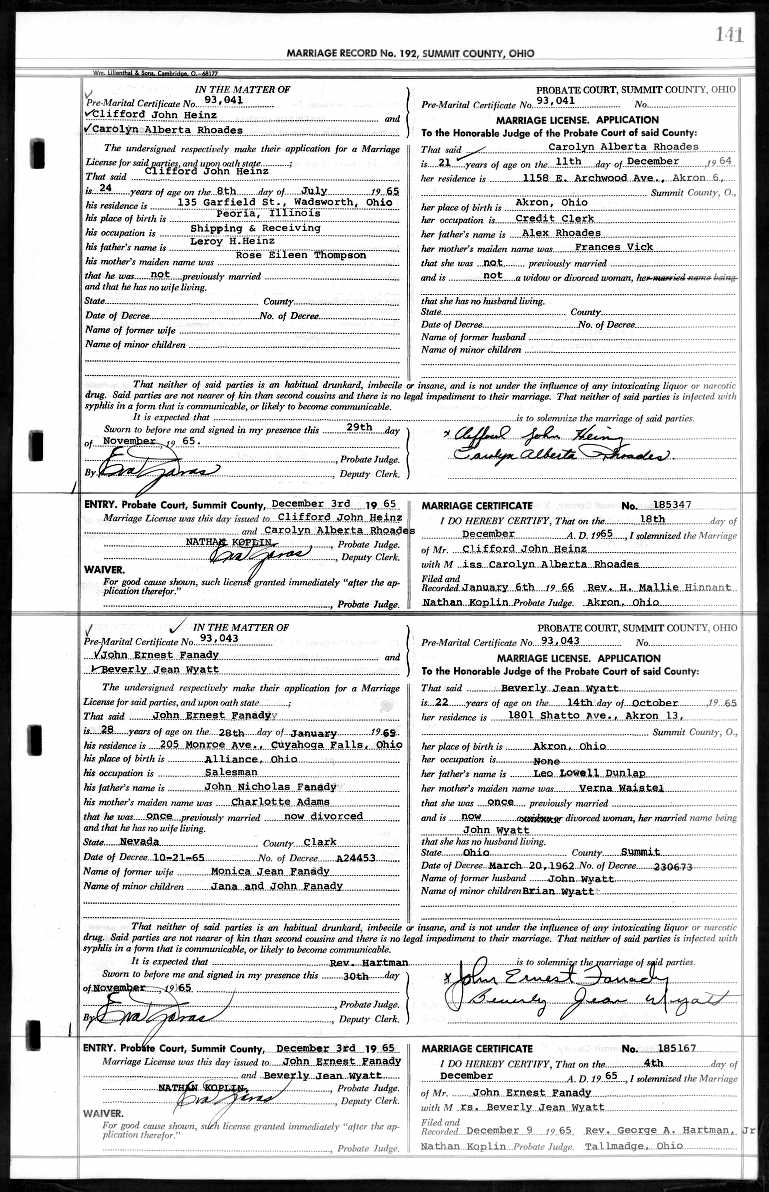 141
MARRIAGE RECORD No. 192, SUMMIT COUNTY, OHIO
Wm. Lilienthal & Sons, Cambridge, O.—68177
IN THE MATTER OF
Pre-Marital Certificate No. 93,041
Clifford John Heinz and
Carolyn Alberta Rhoades
The undersigned respectively make their application for a Marriage
License for said parties, and upon oath state ;
That said Clifford John Heinz
is 24 years of age on the 8th day of July 1965
his residence is 135 Garfield St., Wadsworth, Ohio
his place of birth is Peoria, Illinois
his occupation is Shipping & Receiving
his father's name is Leroy H.Heinz
his mother's maiden name was Rose Eileen Thompson
that he was not previously married
and that he has no wife living.
State County
Date of Decree No. of Decree
Name of former wife
Name of minor children
PROBATE COURT, SUMMIT COUNTY, OHIO
Pre-Marital Certificate No. 93,041 No.
MARRIAGE LICENSE. APPLICATION
To the Honorable Judge of the Probate Court of said County:
That said Carolyn Alberta Rhoades
is 21 years of age on the 11th day of December 1964
her residence is 1158 E. Archwood Ave., Akron 6,
Summit County, O.,
her place of birth is Akron, Ohio
her occupation is Credit Clerk
her father's name is Alex Rhoades
her mother's maiden name was Frances Vick
that she was not previously married
and is not a widow or divorced woman, her married name being
that she has no husband living.
State County
Date of Decree No. of Decree
Name of former husband
Name of minor children
That neither of said parties is an habitual drunkard, imbecile or insane, and is not under the influence of any intoxicating liquor or narcotic
drug. Said parties are not nearer of kin than second cousins and there is no legal impediment to their marriage. That neither of said parties is infected with
syphlis in a form that is communicable, or likely to become communicable.
It is expected that is to solemnize the marriage of said parties.
Sworn to before me and signed in my presence this 29th day
of November, 1965.
, Probate Judge.
By Eva Zavas , Deputy Clerk.
x Clifford John Heinz
Carolyn Alberta Rhoades.
ENTRY. Probate Court, Summit County, December 3rd 1965
Marriage License was this day issued to Clifford John Heinz
and Carolyn Alberta Rhoades
NATHAN KOPLIN, , Probate Judge.
Eva Zavas , Deputy Clerk.
WAIVER.
For good cause shown, such license granted immediately "after the ap-
plication therefor."
, Probate Judge.
MARRIAGE CERTIFICATE No. 185347
I DO HEREBY CERTIFY, That on the 18th day of
December A. D. 1965, I solemnized the Marriage
of Mr. Clifford John Heinz
with M iss Carolyn Alberta Rhoades
Filed and
Recorded January 6th 1966 Rev. H. Mallie Hinnant
Nathan Koplin Probate Judge. Akron, Ohio
IN THE MATTER OF
Pre-Marital Certificate No. 93,043
John Ernest Fanady and
Beverly Jean Wyatt
The undersigned respectively make their application for a Marriage
License for said parties, and upon oath state ;
That said John Ernest Fanady
is 28 years of age on the 28th day of January 1965
his residence is 205 Monroe Ave., Cuyahoga Falls, Ohio
his place of birth is Alliance, Ohio
his occupation is Salesman
his father's name is John Nicholas Fanady
his mother's maiden name was Charlotte Adams
that he was once previously married now divorced
and that he has no wife living.
State Nevada County Clark
Date of Decree 10-21-65 No. of Decree A24453
Name of former wife Monica Jean Fanady
Name of minor children Jana and John Fanady
PROBATE COURT, SUMMIT COUNTY, OHIO
Pre-Marital Certificate No. 93,043 No.
MARRIAGE LICENSE. APPLICATION
To the Honorable Judge of the Probate Court of said County:
That said Beverly Jean Wyatt
is 22 years of age on the 14th day of October , 1965
her residence is 1801 Shatto Ave., Akron 13,
Summit County, O.,
her place of birth is Akron, Ohio
her occupation is None
her father's name is Leo Lowell Dunlap
her mother's maiden name was Verna Waistel
that she was once previously married
and is now divorced woman, her married name being
John Wyatt
that she has no husband living.
State Ohio County Summit
Date of Decree March 20,1962 No. of Decree 230673
Name of former husband John Wyatt
Name of minor children Brian Wyatt
That neither of said parties is an habitual drunkard, imbecile or insane, and is not under the influence of any intoxicating liquor or narcotic
drug. Said parties are not nearer of kin than second cousins and there is no legal impediment to their marriage. That neither of said parties is infected with
syphlis in a form that is communicable, or likely to become communicable.
It is expected that Rev. Hartman is to solemnize the marriage of said parties.
Sworn to before me and signed in my presence this 30th day
of November , 1965
, Probate Judge.
By Eva Zavas , Deputy Clerk.
x John Ernest Fanady
Beverly Jean Wyatt
ENTRY. Probate Court, Summit County, December 3rd 1965
Marriage License was this day issued to John Ernest Fanady
and Beverly Jean Wyatt
NATHAN KOPLIN, , Probate Judge.
Eva Zavas , Deputy Clerk.
WAIVER.
For good cause shown, such license granted immediately "after the ap-
plication therefor."
, Probate Judge.
MARRIAGE CERTIFICATE No. 185167
I DO HEREBY CERTIFY, That on the 4th day of
December A. D. 1965 , I solemnized the Marriage
of Mr. John Ernest Fanady
with M rs. Beverly Jean Wyatt
Filed and
Recorded December 9 1965 Rev. George A. Hartman, Jr
Nathan Koplin Probate Judge. Tallmadge, Ohio